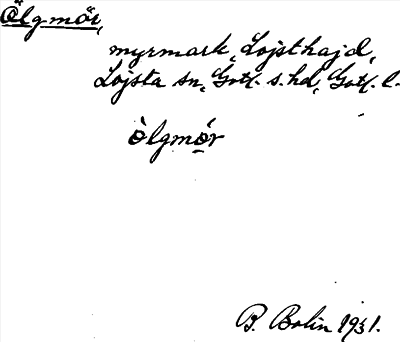 Ölgmör,
myrmark, Lojsthajd,
Lojsta sn, Gotl. s. hd, Gotl. l.
òlgmór
B. Bolin 1931.